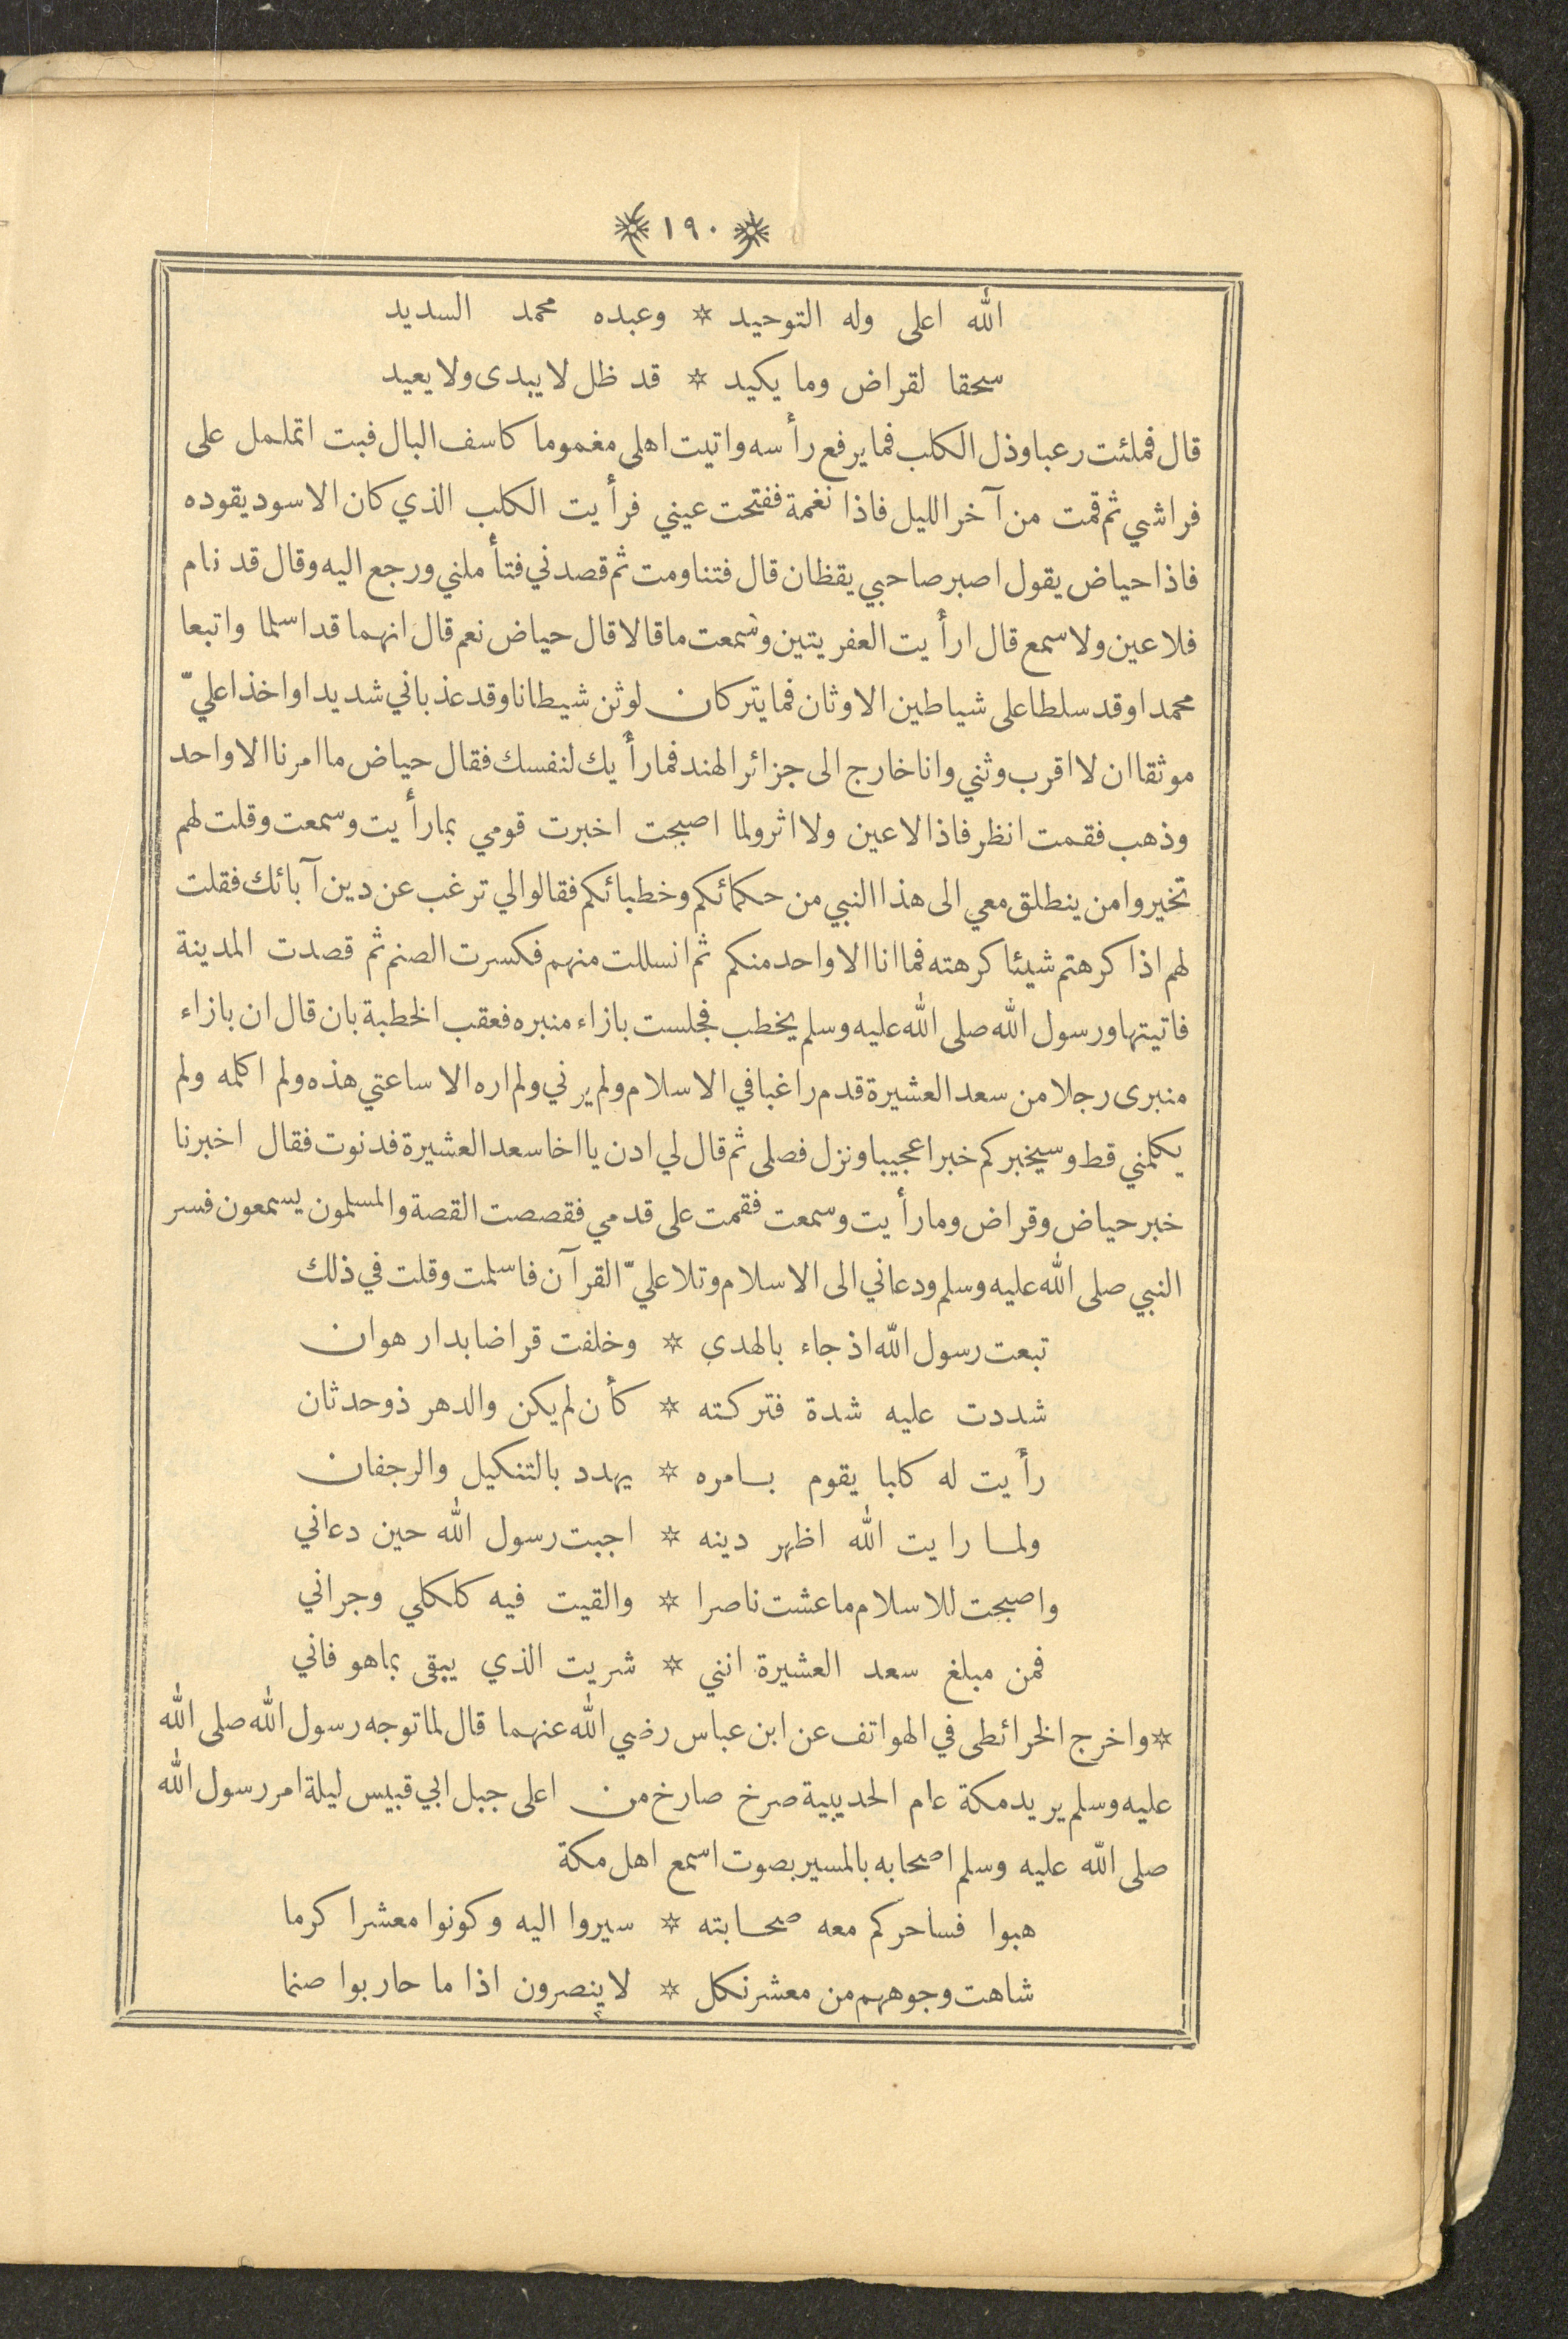 ١٩٠
الله اعلى وله التوحيد * وعبده محمد السديد
سحقا لقراض وما يكيد * قد ظل لا يبدى ولا يعيد
قال فملئت رعبا وذل الكلب فما يرفع رأسه واتيت اهلى مغموما كاسف البال فبت اتململ على
فراشي ثم قمت من آخر الليل فاذا نغمة ففتحت عيني فرأيت الكلب الذي كان الاسود يقوده
فاذا حياض يقول اصبر صاحبي يقظان قال فتناومت ثم قصدني فتأملني ورجع اليه وقال قد نام
فلا عين ولا سمع قال ارأيت العفريتين وسمعت ما قالا قال حياض نعم قال انهما قد اسلما واتبعا
محمدا وقد سلطا على شياطين الاوثان فما يتركان لوثن شيطانا وقد عذباني شديدا واخذا عليّ
موثقا ان لا اقرب وثني وانا خارج الى جزائر الهند فما رأيك لنفسك فقال حياض ما امرنا الا واحد
وذهب فقمت انظر فاذا لا عين ولا اثر ولما اصبحت اخبرت قومي بما رأيت وسمعت وقلت لهم
تخيروا من ينطلق معي الى هذا النبي من حكمائكم وخطبائكم فقالوا لي ترغب عن دين آبائك فقلت
لهم اذا كرهتم شيئا كرهته فما انا الا واحد منكم ثم انسللت منهم فكسرت الصنم ثم قصدت المدينة
فاتيتها ورسول الله صلى الله عليه وسلم يخطب فجلست بازاء منبره فعقب الخطبة بان قال ان بازاء
منبرى رجلا من سعد العشيرة قدم راغبا في الاسلام ولم يرني ولم اره الا ساعتي هذه ولم اكلمه ولم
يكلمني قط وسيخبركم خبرا عجيبا ونزل فصلى ثم قال لي ادن يا اخا سعد العشيرة فدنوت فقال اخبرنا
خبر حياض وقراض وما رأيت وسمعت فقمت على قدمي فقصصت القصة والمسلمون يسمعون فسر
النبي صلى الله عليه وسلم ودعاني الى الاسلام وتلا عليّ القرآن فاسلمت وقلت في ذلك
تبعت رسول الله اذ جاء بالهدى * وخلفت قراضا بدار هوان
شددت عليه شدة فتركته * كأن لم يكن والدهر ذو حدثان
رأيت له كلبا يقوم بامره * يهدد بالتنكيل والرجفان
ولما رايت الله اظهر دينه * اجبت رسول الله حين دعاني
واصبحت للاسلام ما عشت ناصرا * والقيت فيه كلكلي وجراني
فمن مبلغ سعد العشيرة انني * شريت الذي يبقى بما هو فاني
* واخرج الخرائطى في الهواتف عن ابن عباس رضي الله عنهما قال لما توجه رسول الله صلى الله
عليه وسلم يريد مكة عام الحديبية صرخ صارخ من اعلى جبل ابي قبيس ليلة امر رسول الله
صلى الله عليه وسلم اصحابه بالمسير بصوت اسمع اهل مكة
هبوا فساحركم معه صحابته * سيروا اليه وكونوا معشرا كرما
شاهت وجوههم من معشر نكل * لا ينصرون اذا ما حاربوا صنما